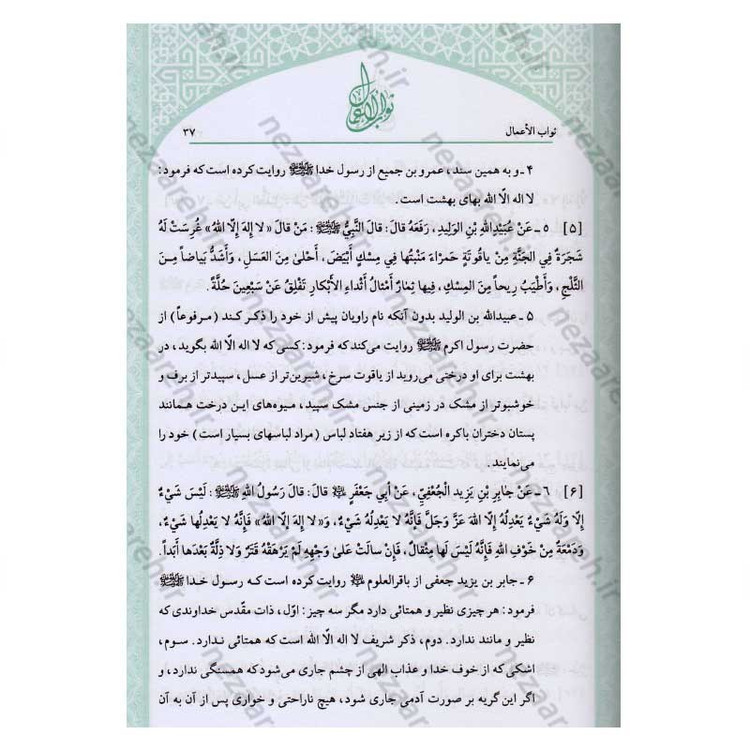 ثواب الأعمال
ثواب الأعمال
۳۷
۴ ـ و به همین سند، عمرو بن جمیع از رسول خدا ﷺ روایت کرده است که فرمود:
لا اله الّا الله بهای بهشت است.
[۵] ٥ ـ عَنْ عُبَيْدِاللّٰهِ بْنِ الوَلِيدِ، رَفَعَهُ قالَ: قالَ النَّبِيُّ ﷺ: مَنْ قالَ «لا إلهَ إلَّا اللّٰهُ» غُرِسَتْ لَهُ
شَجَرَةٌ فِي الجَنَّةِ مِنْ ياقُوتَةٍ حَمراءَ، مَنْبَتُها فِي مِسْكٍ أبْيَضَ، أحْلىٰ مِنَ العَسَلِ، وَأَشَدُّ بَياضاً مِنَ
الثَّلْجِ، وَأَطْيَبُ رِيحاً مِنَ المِسْكِ، فِيها ثِمارٌ أمْثالُ أثْداءِ الأبْكارِ تَفْلِقُ عَنْ سَبْعِينَ حُلَّةً.
۵ ـ عبیدالله بن الولید بدون آنکه نام راویان پیش از خود را ذکر کند (مرفوعاً) از
حضرت رسول اکرم ﷺ روایت می‌کند که فرمود: کسی که لا اله الّا الله بگوید، در
بهشت برای او درختی می‌روید از یاقوت سرخ، شیرین‌تر از عسل، سپیدتر از برف و
خوشبوتر از مشک در زمینی از جنس مشک سپید، میوه‌های این درخت همانند
پستان دختران باکره است که از زیر هفتاد لباس (مراد لباسهای بسیار است) خود را
می‌نمایند.
[۶] ٦ ـ عَنْ جابِرِ بْنِ يَزِيدَ الجُعْفِيِّ، عَنْ أبِي جَعْفَرٍ ؑ قالَ: قالَ رَسُولُ اللّٰهِ ﷺ: لَيْسَ شَيْءٌ
إلّا وَلَهُ شَيْءٌ يَعْدِلُهُ إلَّا اللّٰهَ عَزَّ وَجَلَّ فَإنَّهُ لا يَعْدِلُهُ شَيْءٌ، وَ«لا إلهَ إلَّا اللّٰهُ» فَإنَّهُ لا يَعْدِلُها شَيْءٌ،
وَدَمْعَةً مِنْ خَوْفِ اللّٰهِ فَإنَّهُ لَيْسَ لَها مِثْقالٌ، فَإنْ سالَتْ عَلىٰ وَجْهِهِ لَمْ يَرْهَقْهُ قَتَرٌ وَلا ذِلَّةٌ بَعْدَها أبَداً.
۶ ـ جابر بن یزید جعفی از باقرالعلوم ؑ روایت کرده است که رسول خدا ﷺ
فرمود: هر چیزی نظیر و همتائی دارد مگر سه چیز: اوّل، ذات مقدّس خداوندی که
نظیر و مانند ندارد. دوم، ذکر شریف لا اله الّا الله است که همتائی ندارد. سوم،
اشکی که از خوف خدا و عذاب الهی از چشم جاری می‌شود که همسنگی ندارد، و
اگر این گریه بر صورت آدمی جاری شود، هیچ ناراحتی و خواری پس از آن به آن
nezaareh.ir